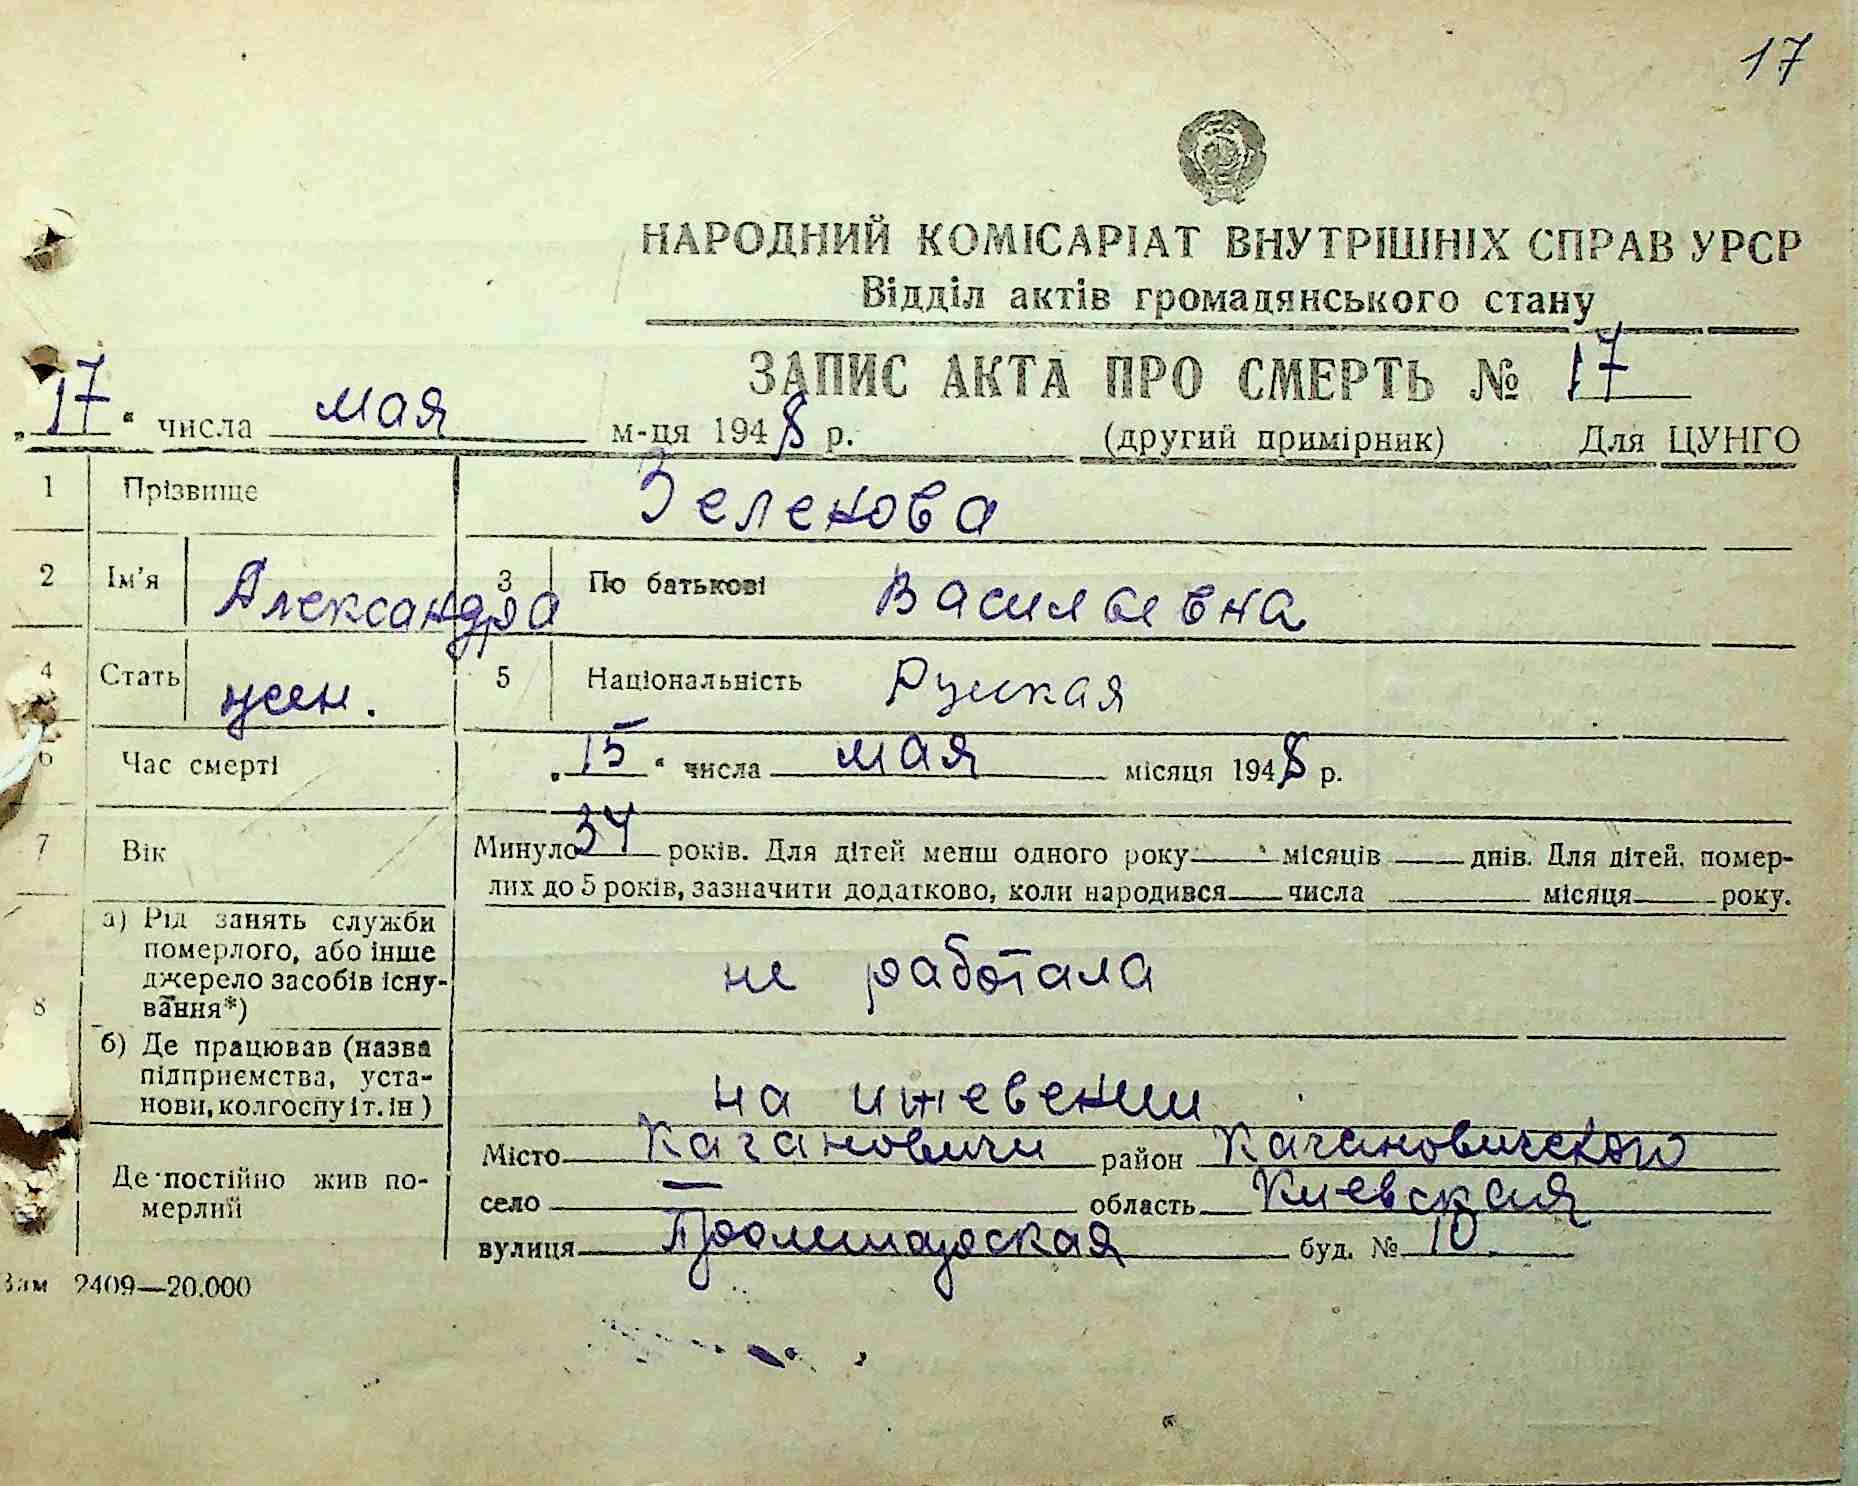 17
НАРОДНИЙ КОМІСАРІАТ ВНУТРІШНІХ СПРАВ УРСР
Відділ актів громадянського стану
ЗАПИС АКТА ПРО СМЕРТЬ № 17
„17“ числа мая м-ця 1948 р. (другий примірник) Для ЦУНГО
1 Прізвище Зеленова
2 Ім'я Александра 3 По батькові Васильевна
4 Стать жен. 5 Національність Руцкая
6 Час смерті „15“ числа мая місяця 1948 р.
7 Вік Минуло 34 років. Для дітей менш одного року — місяців — днів. Для дітей, помер-
лих до 5 років, зазначити додатково, коли народився — числа — місяця — року.
8 а) Рід занять служби
померлого, або інше
джерело засобів існу-
вання*) не работала
б) Де працював (назва
підприємства, уста-
нови, колгоспу і т. ін) на ижевении
Де постійно жив по-
мерлий
Місто Кагановичи район Кагановического
село — область Киевская
вулиця Пролетарская буд. № 10
Зам 2409—20.000